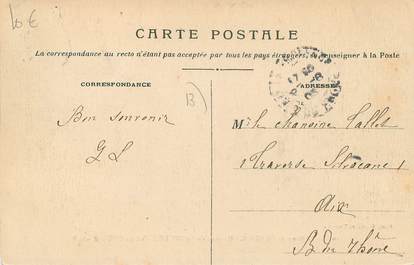 10 €
CARTE POSTALE
La correspondance au recto n'étant pas acceptée par tous les pays étrangers, se renseigner à la Poste
CORRESPONDANCE
ADRESSE
B)
Bon souvenir
G L
Mr le chanoine
1 traverse
Aix
B. du Rhône